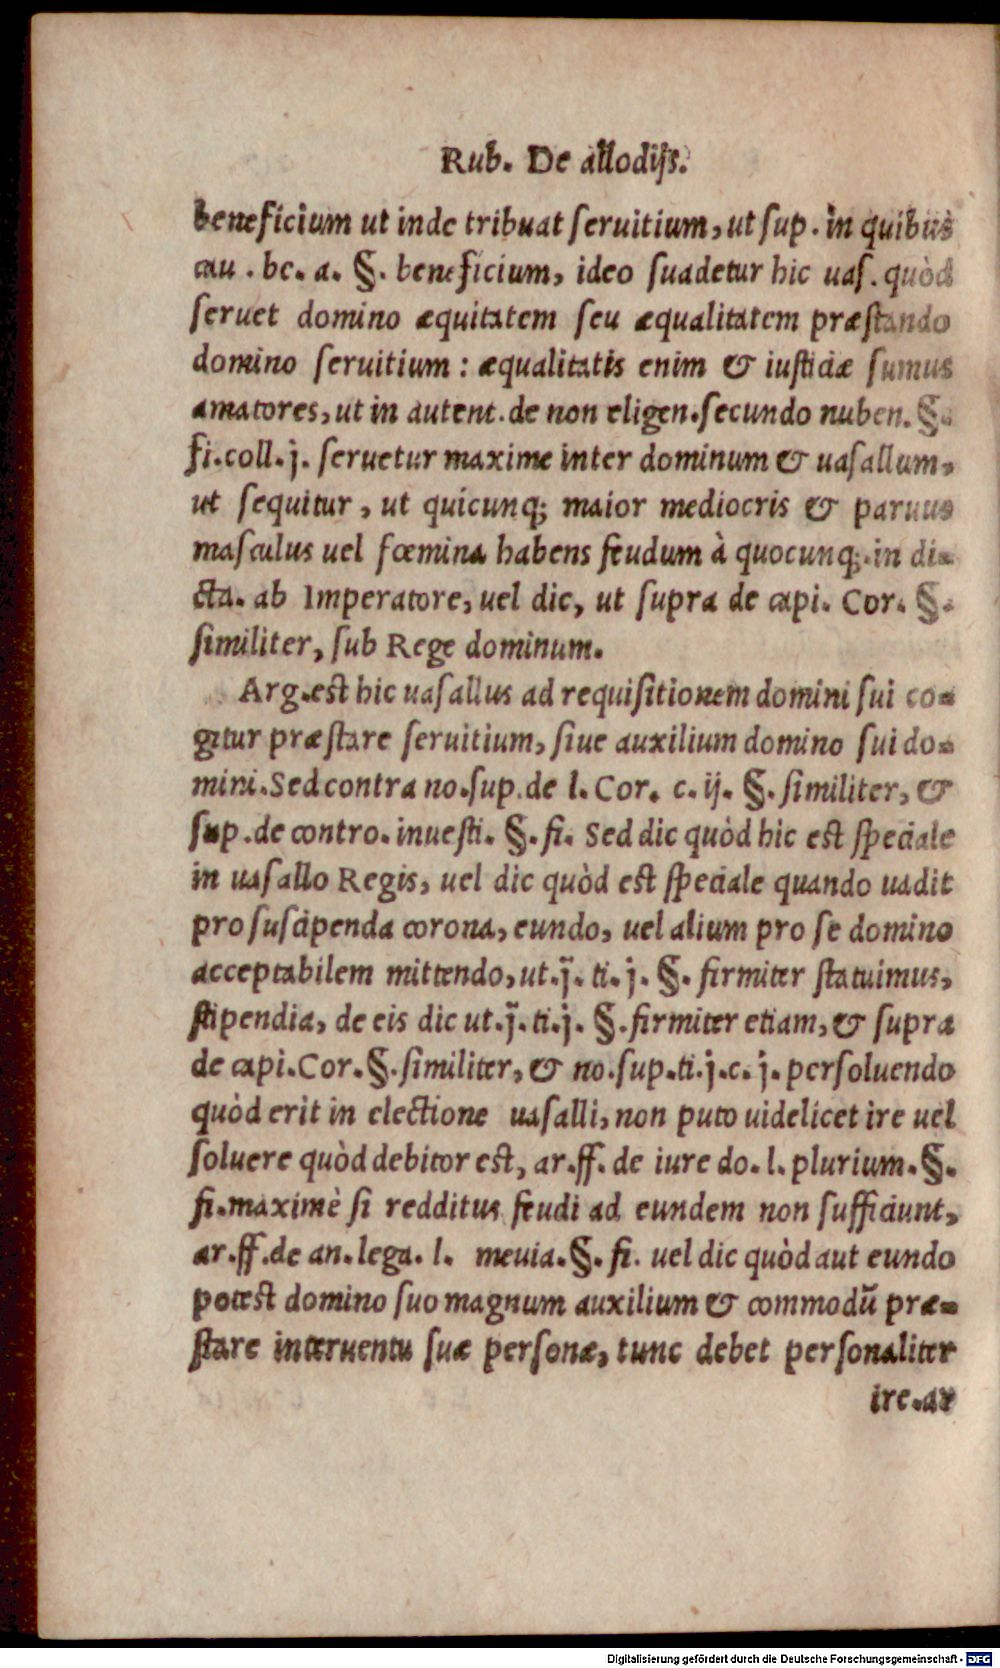 Rub. De allodijs.
beneficium ut inde tribuat seruitium, ut sup. in quibus
cau. be. a. §. beneficium, ideo suadetur hic uas. quòd
seruet domino æquitatem seu æqualitatem præstando
domino seruitium: æqualitatis enim & iusticiæ sumus
amatores, ut in autent. de non eligen. secundo nuben. §.
fi. coll. j. seruetur maxime inter dominum & uasallum,
ut sequitur, ut quicunq; maior mediocris & paruus
masculus uel fœmina habens feudum à quocunq;. in di-
cta. ab Imperatore, uel dic, ut supra de capi. Cor. §.
similiter, sub Rege dominum.
Arg. est hic uasallus ad requisitionem domini sui co-
gitur præstare seruitium, siue auxilium domino sui do-
mini. Sed contra no. sup. de l. Cor. c. ij. §. similiter, &
sup. de contro. inuesti. §. fi. Sed dic quòd hic est speciale
in uasallo Regis, uel dic quòd est speciale quando uadit
pro suscipenda corona, eundo, uel alium pro se domino
acceptabilem mittendo, ut. j̄. ti. j. §. firmiter statuimus,
stipendia, de eis dic ut. j̄. ti. j. §. firmiter etiam, & supra
de capi. Cor. §. similiter, & no. sup. ti. j. c. j. persoluendo
quòd erit in electione uasalli, non puto uidelicet ire uel
soluere quòd debitor est, ar. ff. de iure do. l. plurium. §.
fi. maximè si redditus feudi ad eundem non sufficiunt,
ar. ff. de an. lega. l. meuia. §. fi. uel dic quòd aut eundo
potest domino suo magnum auxilium & commodū præ-
stare interuentu suæ personæ, tunc debet personaliter
ire. ar
Digitalisierung gefördert durch die Deutsche Forschungsgemeinschaft - DFG